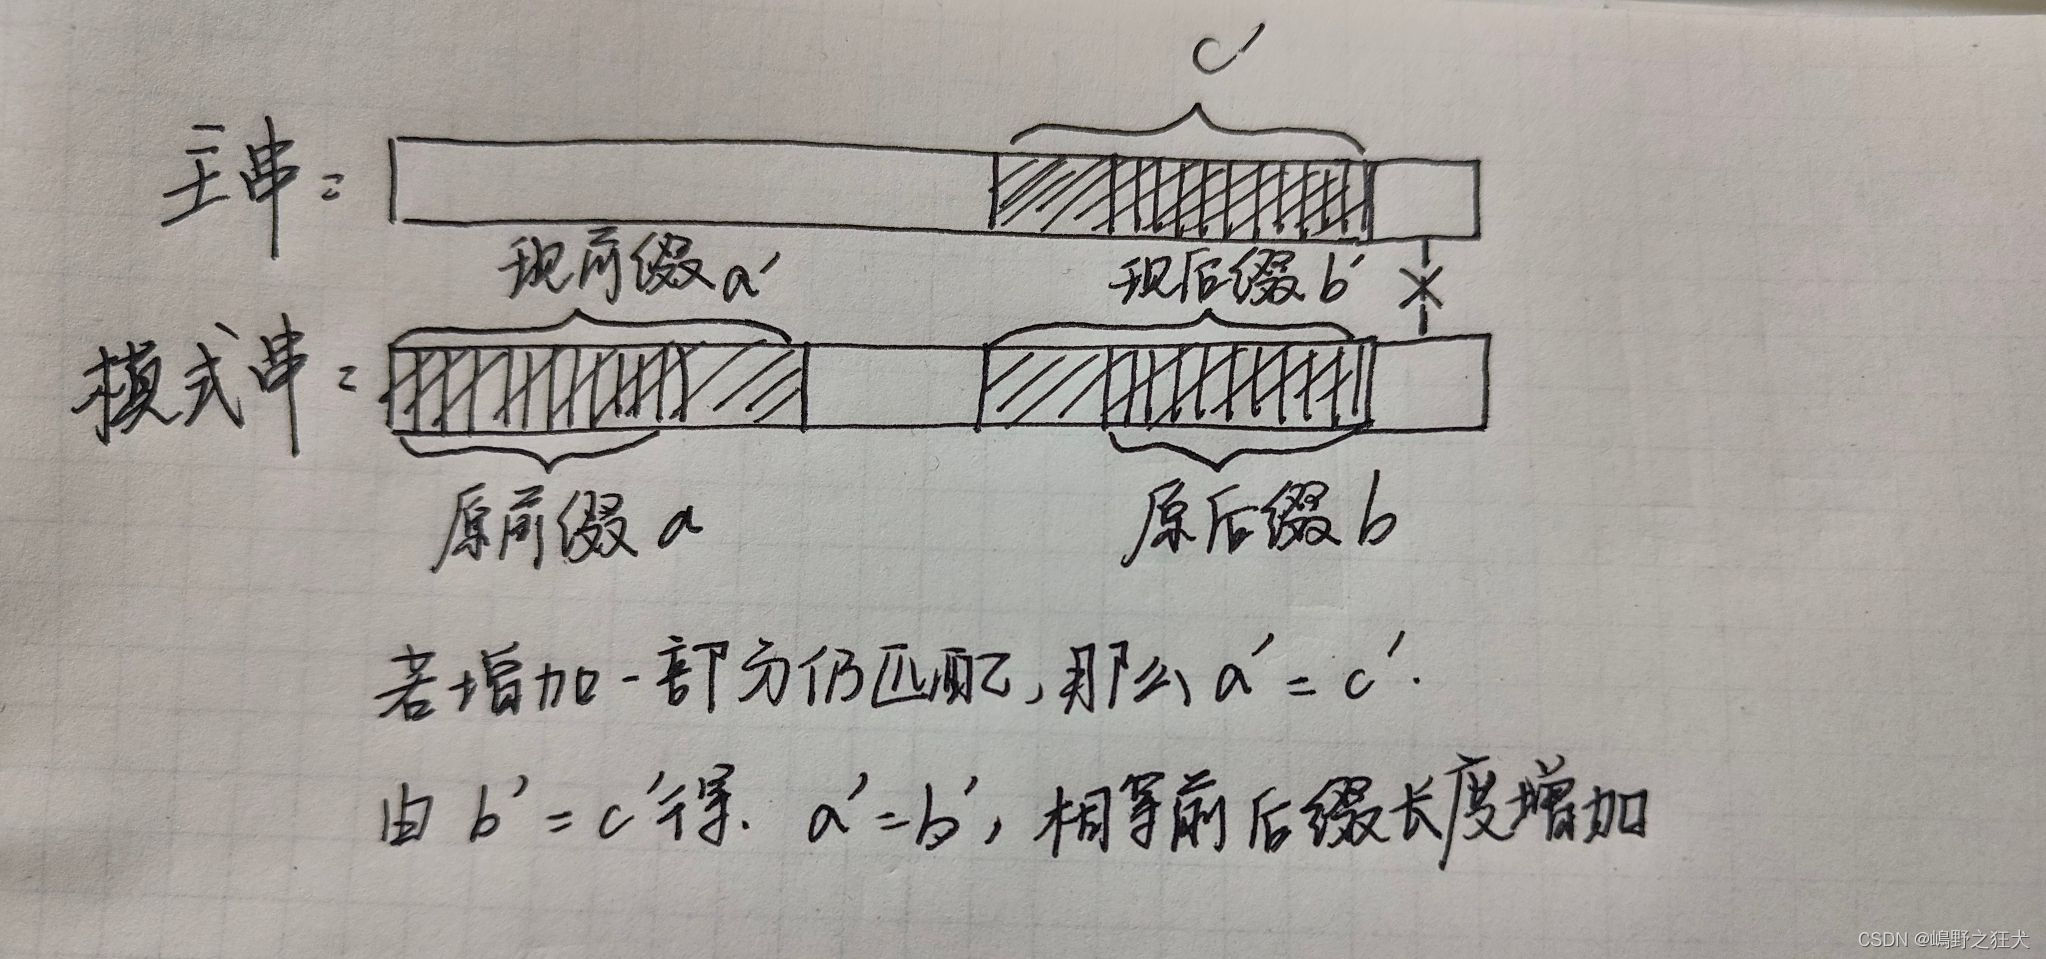 c'
主串=
现前缀a' 现后缀b'
模式串=
原前缀a 原后缀b
若增加一部分仍匹配,那么a'=c'.
由b'=c'得. a'=b',相等前后缀长度增加
CSDN @嶋野之狂犬